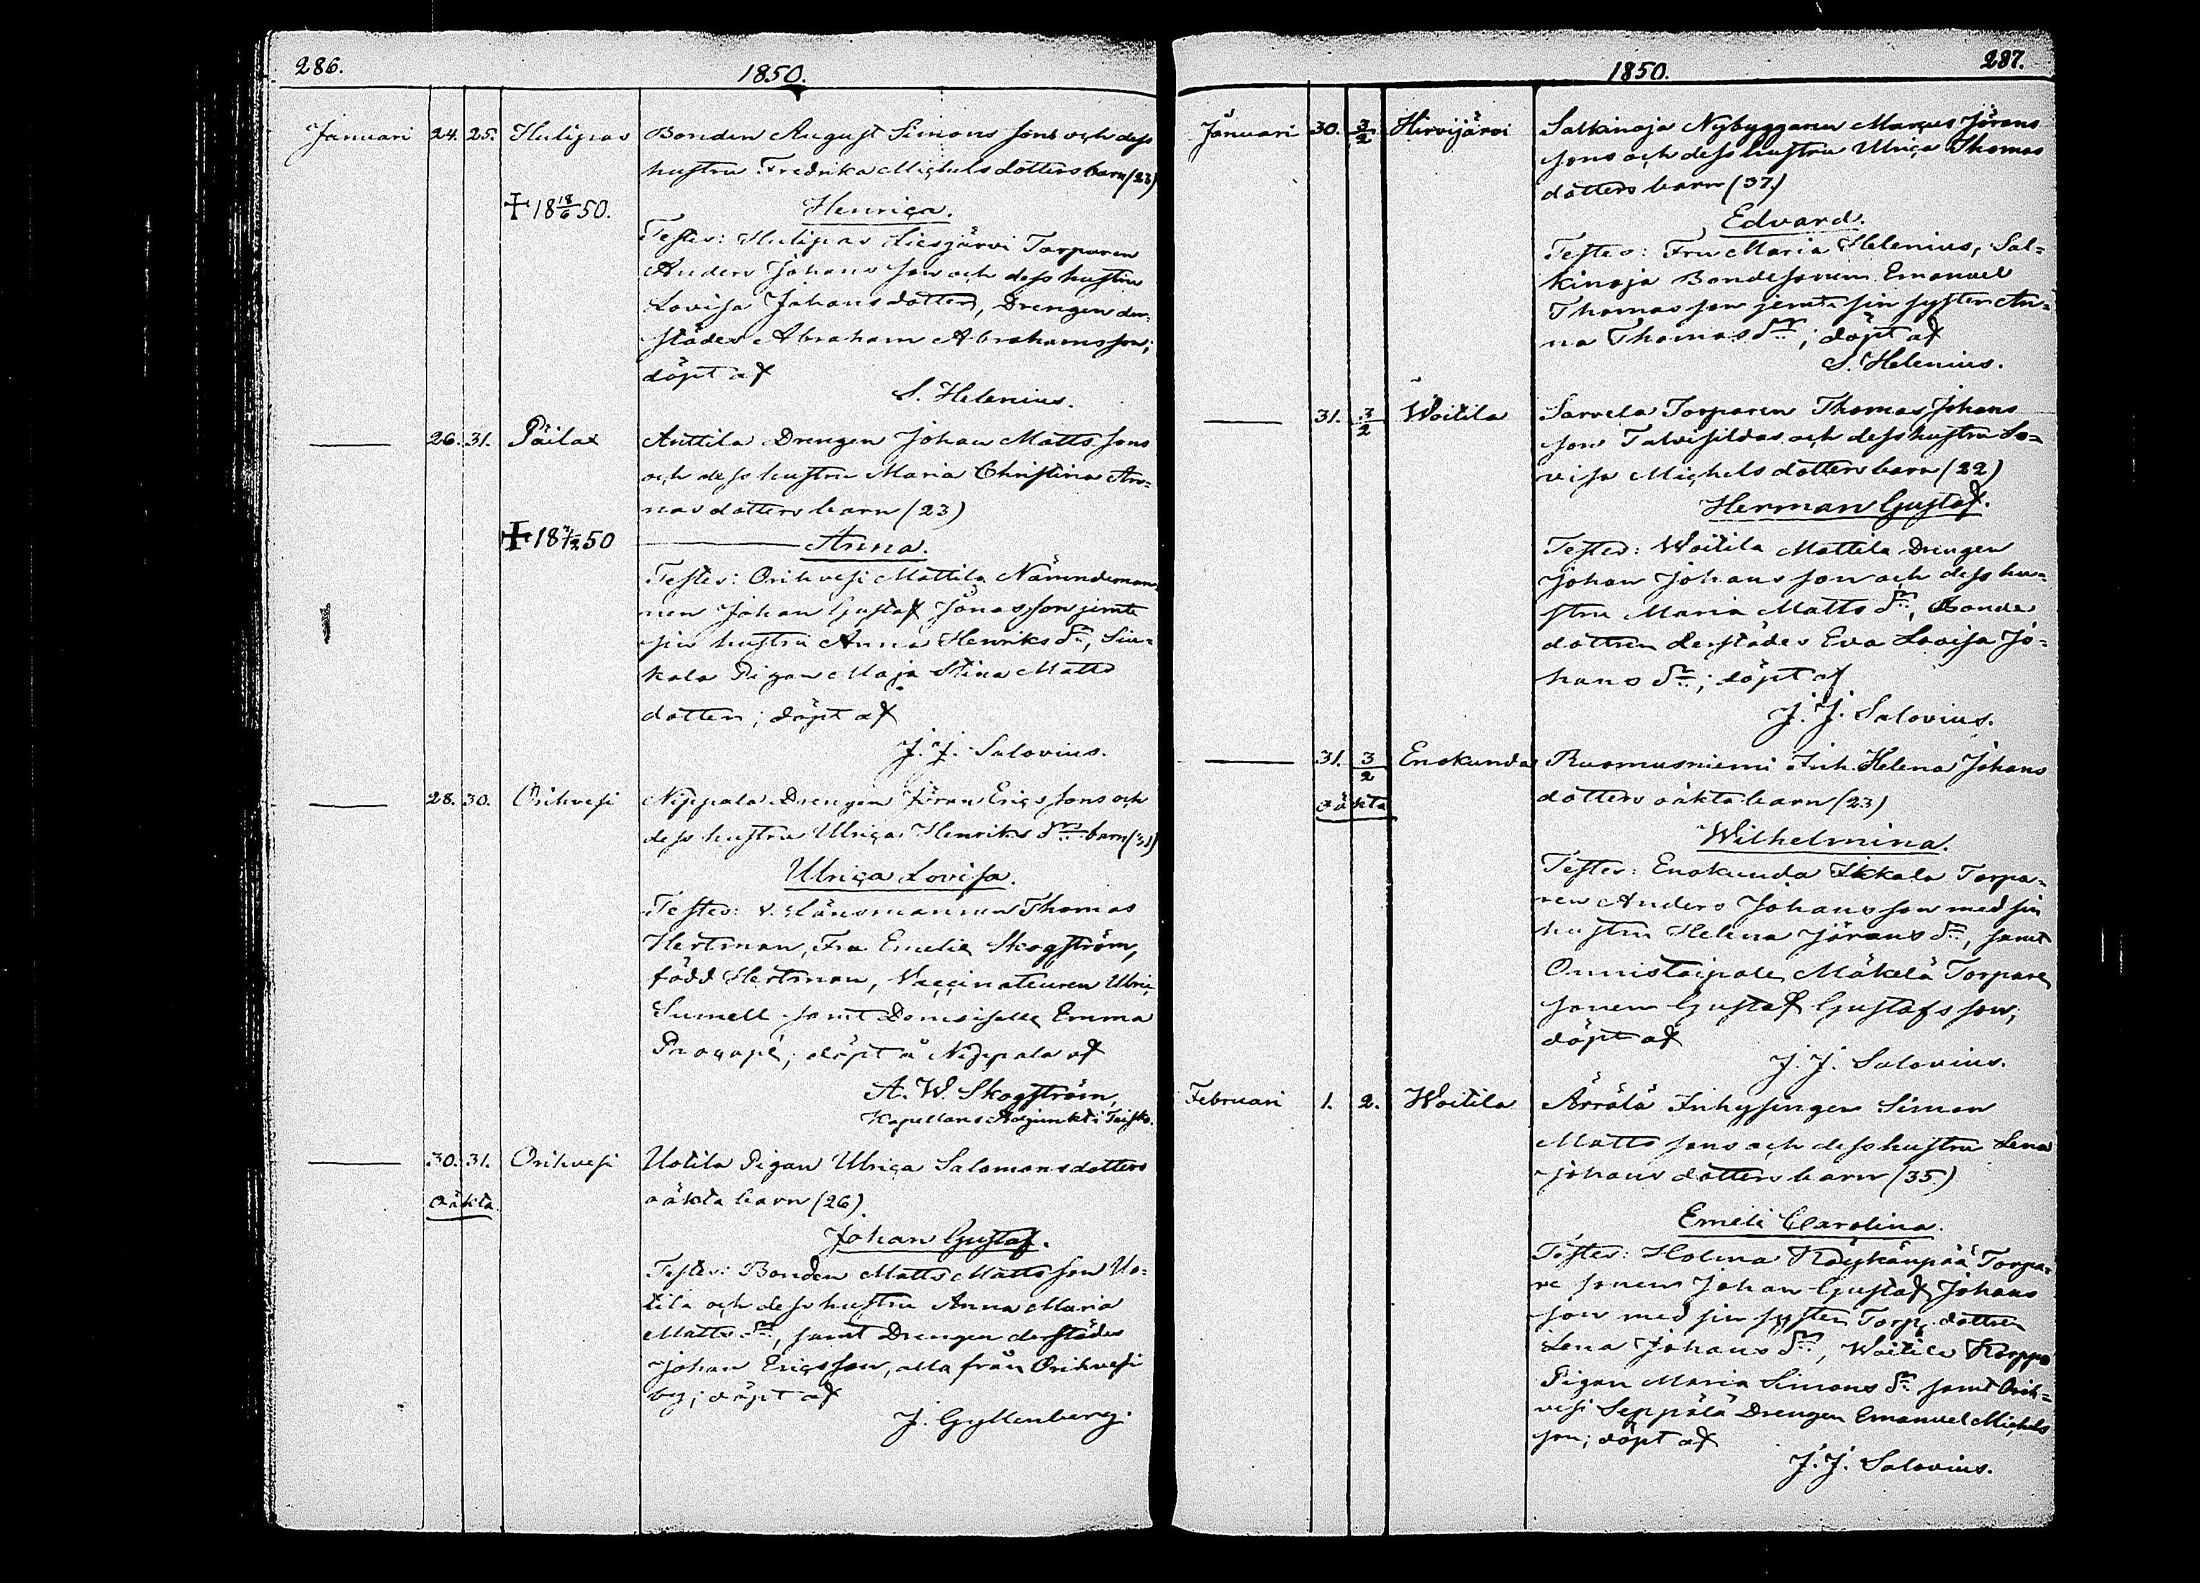 286.
1850.
Januari 24. 25. Hulipas Bonden August Simons sons och dess
hustru Fredrika Michelsdotters barn (23)
✝ 18 18/6 50. Henrica.
Testes: Hulipas Liesjärvi Torparen
Anders Johans son och dess hustru
Lovisa Johansdotter, Drengen der-
städes Abraham Abrahamsson;
döpt af
S. Helenius.
26. 31. Päilax Anttila Drengen Johan Matts sons
och dess hustru Maria Christina An-
nasdotters barn (23)
✝ 18 50 Anna.
Testes: Orihvesi Mattila Nämndeman-
nen Johan Gustaf Jönasson jemte
sin hustru Anna Henriks dr, Siu-
kola Pigan Maja Stina Matts
dotter; döpt af
J. J. Salovius.
28. 30. Orihvesi Nippala Drengen Jöran Erics sons och
dess hustru Ulrica Henriks drs barn (31)
Ulrica Lovisa.
Testes: v. Länsmannen Thomas
Hertman, Fru Emelie Skogström,
född Hertman, Vaccinateuren Ulric
Sumell samt Demoiselle Emma
Procopé; döpt å Nippala af
A. W. Skogström,
Kapellans Adjunkt i Teisko.
30. 31. Orihvesi Uotila Pigan Ulrica Salomonsdotters
oäkta oäkta barn (26)
Johan Gustaf.
Testes: Bonden Matts Matts son Uo-
tila och dess hustru Anna Maria
Matts dr, samt Drengen derstädes
Johan Ericsson, alla från Orihvesi
by; döpt af
J. Gyllenberg.
1850.
287.
Januari 30. 3/2 Hirvijärvi Salkinoja Nybyggaren Marcus Jörans
sons och dess hustru Ulrica Thomas
dotters barn (37)
Edvard.
Testes: Fru Maria Helenius, Sal-
kinoja Bondesonen Emanuel
Thomas son jemte sin syster An-
na Thomas dr; döpt af
S. Helenius.
31. 3/2 Woitila Sarvela Torparen Thomas Johans
son Talvisildas och dess hustru Lo-
visa Michelsdotters barn (22)
Herman Gustaf.
Testes: Woitila Mattila Drengen
Johan Johans son och dess hu-
stru Maria Matts dr, Bonde
dottren derstädes Eva Lovisa Jo-
hans dr; döpt af
J. J. Salovius.
31. 3/2 Enokunda Ruomusniemi Inh. Helena Johans
oäkta dotters oäkta barn (23)
Wilhelmina.
Testes: Enokunda Ikkala Torpa-
ren Anders Johansson med sin
hustru Helena Jörans dr, samt
Onnistaipale Mäkelä Torpare
sonen Gustaf Gustafs son;
döpt af
J. J. Salovius.
Februari 1. 2. Woitila Ärrälä Inhysingen Simon
Matts sons och dess hustru Lena
Johans dotters barn (35)
Emeli Carolina.
Testes: Holma Röykänpää Torpa-
re sonen Johan Gustaf Johans
son med sin syster Torp. dottren
Lena Johans dr, Woitila Korppo
Pigan Maria Simons dr samt Orih-
vesi Seppälä Drengen Emanuel Michels
son; döpt af
J. J. Salovius.